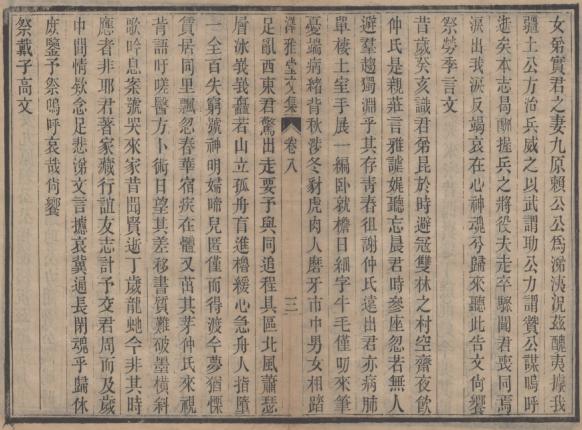 女弟實君之妻九原賴公公爲涕洟況茲醜夷擾我
疆土公方治兵威之以武謂功公力謂贊公謀嗚呼
逝矣本志曷酬握兵之將役夫走卒驟聞君喪同焉
淚出我淚反竭哀在心神魂兮歸來聽此告文尙饗
祭勞季言文
昔歲癸亥識君弟昆於時避寇雙林之村空齋夜飲
仲氏是親莊言雅謔娓聽忘晨君時參座忽若無人
避羣趨獨淵乎其存靑春徂謝仲氏遠出君亦病肺
單棲土室手展一編臥就檐日細字牛毛僅叻來筆
憂端病緒背秋涉冬豺虎肉人磨牙市中男女相蹈
澤雅堂文集
卷八
三
足亂西東君驚出走要予與同追程具區北風蕭瑟
層冰峩峩矗若山立孤舟首進櫓緩心急舟人指墮
一全百失窮號神明孀啼兒匿僅而得渡今夢猶慄
賃居同里飄忽春華宿疾在髓又茁其芽仲氏來視
背語吁嗟醫方卜術日望其差移書質難破墨橫斜
歌吟息案號哭來家昔聞賢逝丁歲龍虵今非其時
應者非耶君著家藏行誼友志計予交君周而及歲
中間情欵念足悲涕文言攄哀冀逼長閉魂乎歸休
庶鑒予祭嗚呼哀哉尙饗
祭戴子高文